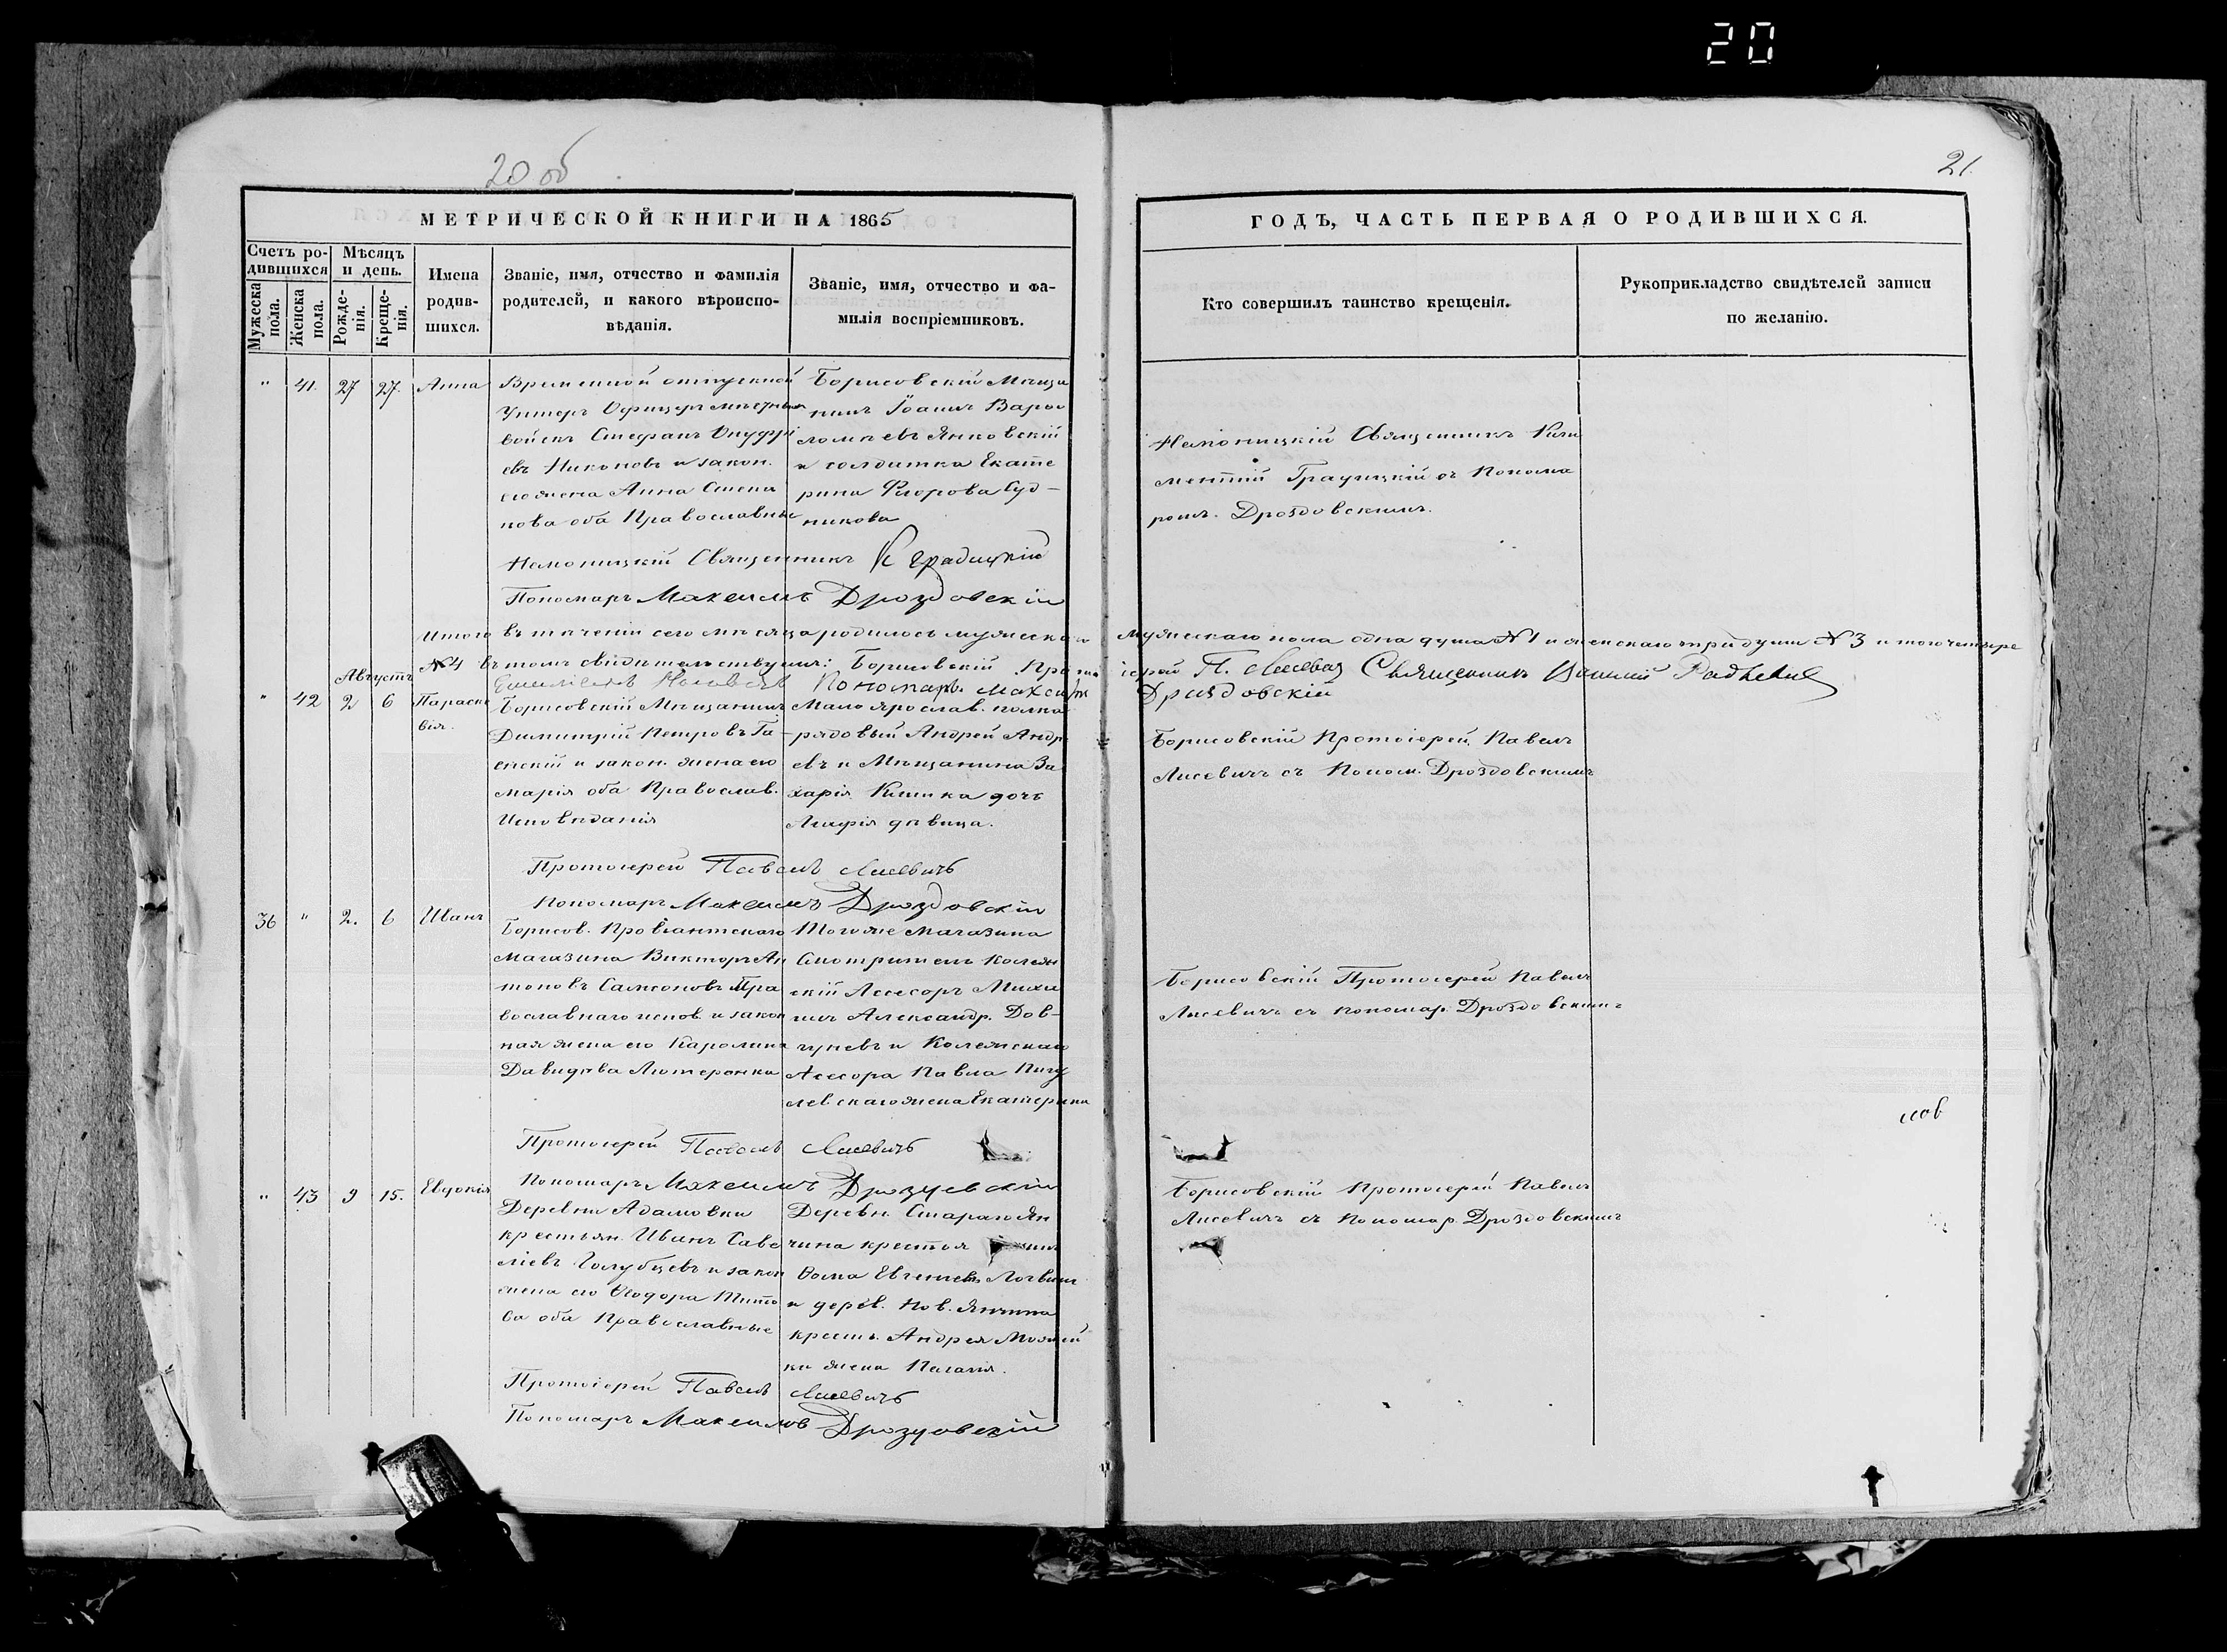 20
20 об
21
МЕТРИЧЕСКОЙ КНИГИ НА 1865
ГОДЪ, ЧАСТЬ ПЕРВАЯ О РОДИВШИХСЯ.
Счетъ ро-
дившихся
Мѣсяцъ
и день.
Мужеска
пола.
Женска
пола.
Рожде-
нія.
Креще-
нія.
Имена
родив-
шихся.
Званіе, имя, отчество и фамилія
родителей, и какого вѣроиспо-
вѣданія.
Званіе, имя, отчество и фа-
милія воспріемниковъ.
Кто совершилъ таинство крещенія.
Рукоприкладство свидѣтелей записи
по желанію.
" 41. 27 27. Анна
Временной отпускной
Унтеръ Офицеръ мѣстныхъ
войскъ Стефанъ Онуфрі
евъ Никоновъ и закон.
его жена Анна Степа
нова оба Православные
Борисовскій Мѣща
нинъ Іоаннъ Варѳо
ломѣевъ Янковскій
и солдатка Екате
рина Флорова Суд-
никова
Немоницкій Священникъ Кли
ментій Градицкій съ Понома
ромъ Дроздовскимъ.
Немоницкій Священникъ К Градицкій
Пономарь Максимъ Дроздовскій
Итого въ теченіи сего мѣсяца родилось мужескаго
мужескаго пола одна душа №1 и женскаго три души №3 и того четыре
№4 въ томъ свидѣтельствуемъ: Борисовскій Прото
іерей П. Лисевич Священникъ
Пономарь Максимъ
Дроздовскій
Августъ
" 42 2 6 Параске
вія.
Борисовскій Мѣщанинъ
Димитрій Петровъ Га-
енскій и закон. жена его
Марія оба Православ.
Исповѣданія
Мало ярослав. полка
рядовый Андрей Андре
евъ и Мѣщанина За
харія Кишка дочь
Агафія дѣвица.
Борисовскій Протоіерей Павелъ
Лисевичъ съ Поном. Дроздовскимъ
Протоіерей Павелъ Лисевичъ
Пономарь Максимъ Дроздовскій
36 " 2. 6 Иванъ
Борисов. Провіантскаго
Магазина Викторъ Ан
тоновъ Самсоновъ Пра
вославнаго испов. и закон
ная жена его Каролина
Давидова Лютеранка
Того же магазина
Смотритель Колеж
скій Ассесоръ Михаи
илъ Александр. Дов-
и Колежскаго
Ассесора Павла
жена Екатерина
Борисовскій Протоіерей Павелъ
Лисевичъ съ пономар. Дроздовскимъ
Протоіерей Павелъ Лисевичъ
Пономарь Максимъ Дроздовскій
" 43 9 15. Евдокія
Деревни Адамовки
крестьян. Иванъ Саве
ліевъ Голубцевъ и закон
жена его Ѳеодора Тито
ва оба Православные
Деревн. Стараго Ян
чина крестья нинъ
Ѳома Евгеніевъ
и дерев. Нов. Янчина
крест. Андрея
ка жена Пелагія.
Борисовскій Протоіерей Павелъ
Лисевичъ съ Пономар. Дроздовскимъ
Протоіерей Павелъ Лисевичъ
Пономарь Максимъ Дроздовскій